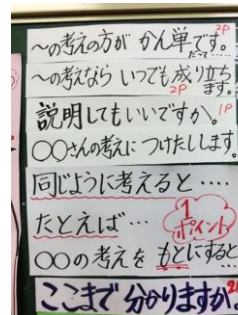 ～の考えの方が かん単です。2P
だって‥‥
～の考えなら いつでも成り立ちます。2P
説明してもいいですか。1P
○○さんの考えに つけたしします。
同じように考えると‥‥
たとえば‥‥
1ポイント
○○の考えを もとにすると
ここまで 分かりますか